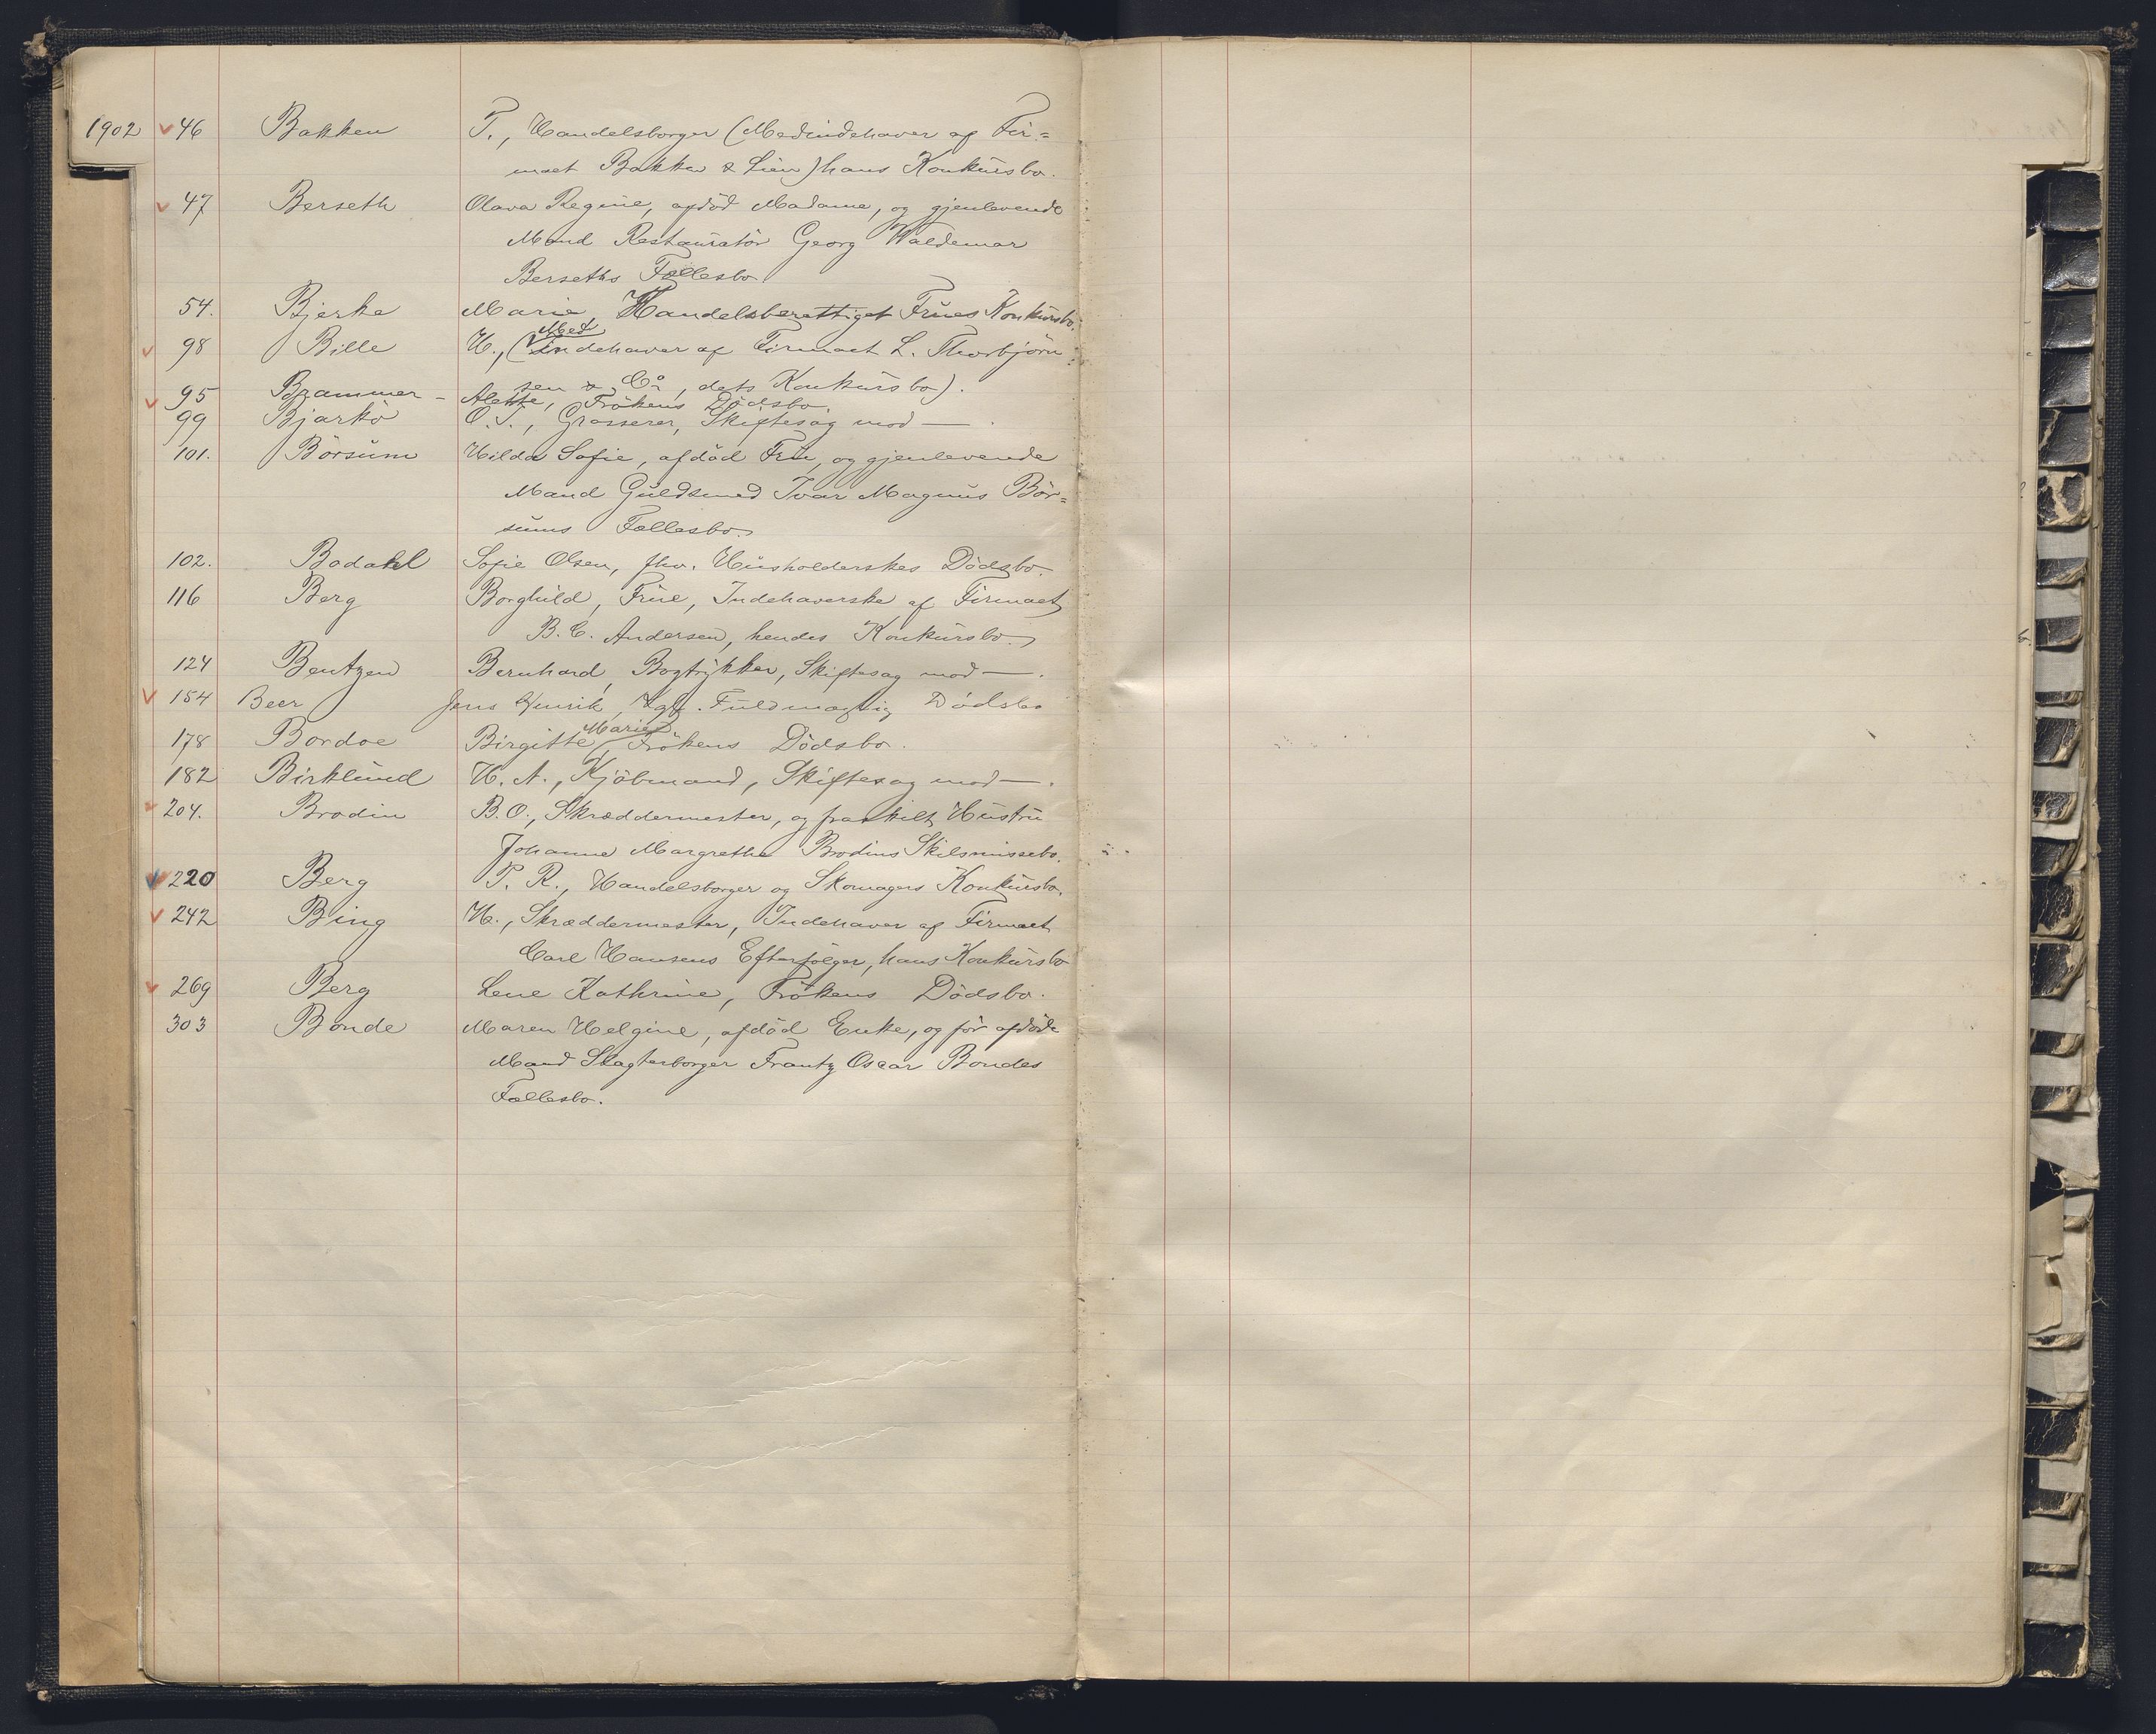 1902 46 Bakken P., Handelsborger (Medindehaver af Fir=
maet Bakken & Lien) hans Konkursbo.
47 Berseth Olava Regine, afdöd Madame, og gjenlevende
Mand Restauratör Georg Waldemar
Berseths Fællesbo.
54. Bjerke Marie, Handelsberettiget Frues Konkursbo.
Med
98 Bille H., (Indehaver af Firmaet L. Thorbjörn=
sen & Co, dets Konkursbo).
95 Alette, Frökens Dödsbo.
99 Bjarkö O. T., Grosserer, Skiftesag mod — .
101. Börsum Hilda Sofie, afdöd Fru, og gjenlevende
Mand Guldsmed Ivar Magnus Bör=
sums Fællesbo.
102. Bodahl Sofie Olsen, fhv. Husholderskes Dödsbo.
116 Berg Borghild, Frue, Indehaverske af Firmaet
B. C. Andersen, hendes Konkursbo.
124 Bentzen Bernhard, Bogtrykker, Skiftesag mod — .
154 Beer Jens Henrik, Fuldmægtig Dödsbo
Marie
178 Bordoe Birgitte, Frökens Dödsbo.
182 Birklund H. A., Kjöbmand, Skiftesag mod — .
204. Brodin B. O., Skræddermester, og fraskilt Hustru
Johanne Margrethe Brodins Skilsmissebo.
220 Berg P. R., Handelsborger og Skomagers Konkursbo.
242 Bing H., Skræddermester, Indehaver af Firmaet
Carl Hansens Efterfölger, hans Konkursbo
269 Berg Lene Kathrine, Frökens Dödsbo.
303 Bonde Maren Helgine, afdöd Enke, og för afdöde
Mand Slagterborger Frantz Oscar Bondes
Fællesbo.